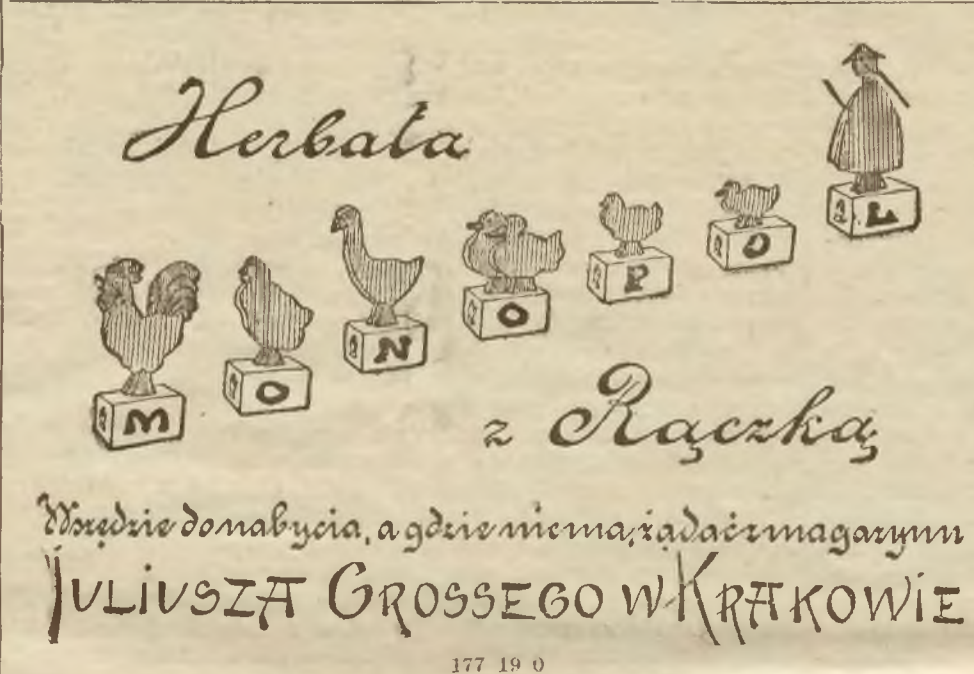 Herbata
MONOPOL
z Rączką
Wszędzie do nabycia, a gdzie niema, żądać z magazynu
JULIUSZA GROSSEGO W KRAKOWIE
177 19 0